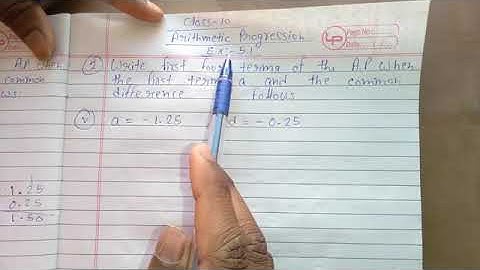 Class-10
Arithmetic Progression
Ex:- 5.1
A.P when
common
ws:
② Write first four terms of the A.P when
the first term a and the common
difference follows
Ⓥ a = -1.25 d = -0.25
1.25
0.25
1.50
LP
Page No.:
Date: